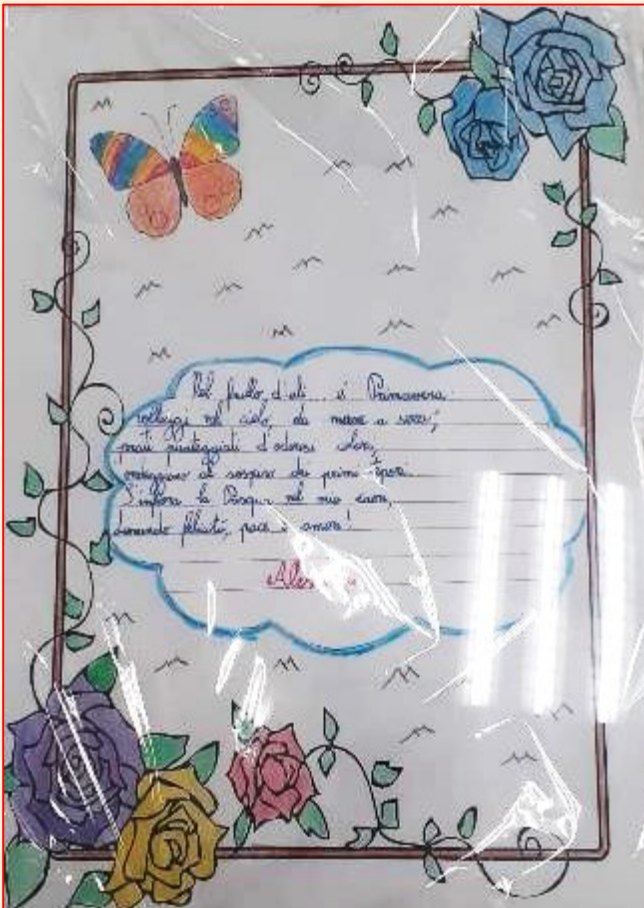 Nel frullo d'ali è Primavera
nel cielo, da mane a sera;
prati punteggiati d'odorosi colori,
al sospiro dei primi tepori.
S'infiora la Pasqua nel mio cuore,
donando felicità, pace e amore!